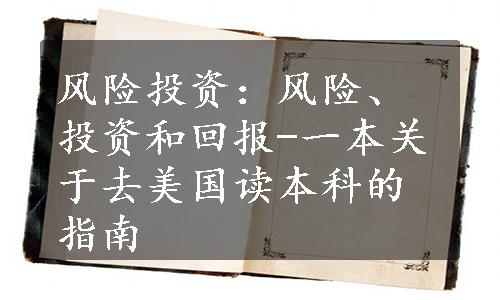 风险投资：风险、
投资和回报-一本关
于去美国读本科的
指南